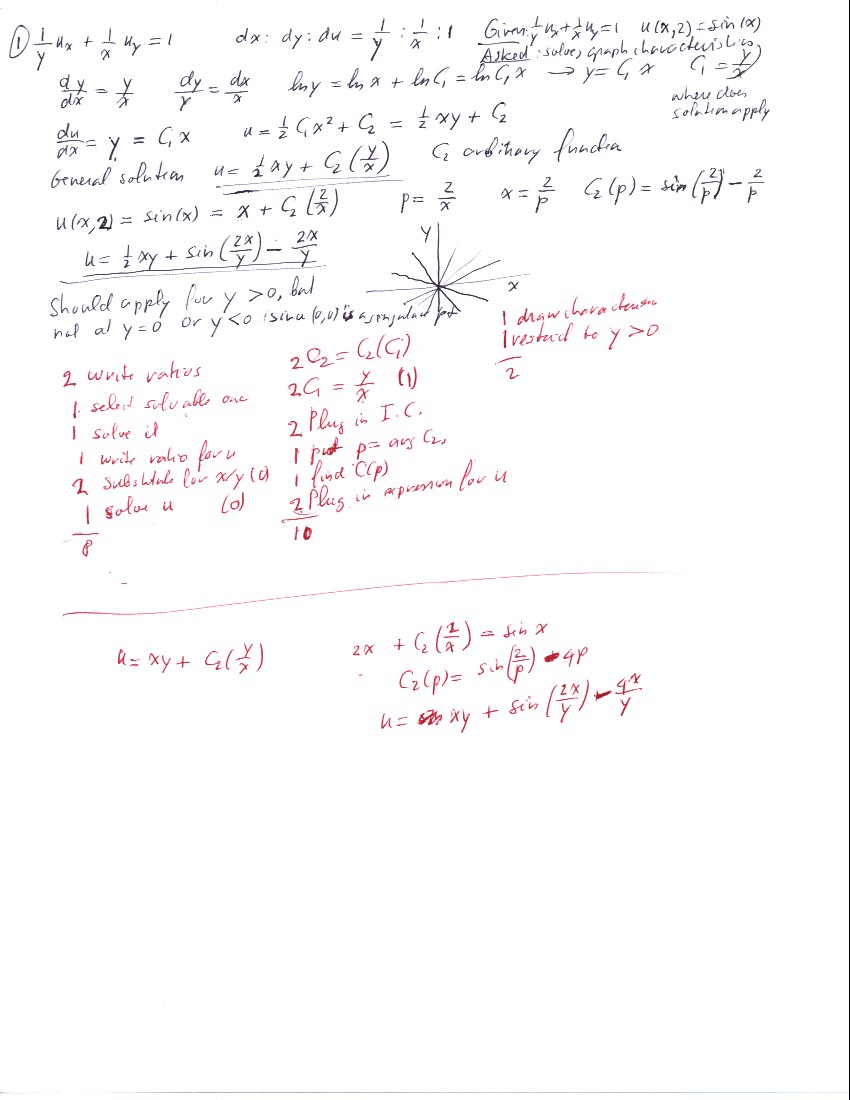 ① 1/y u_x + 1/x u_y = 1 dx : dy : du = 1/y : 1/x : 1 Given: 1/y u_x + 1/x u_y = 1 u(x,2) = sin(x)
Asked: solve, graph characteristics,
dy/dx = y/x dy/y = dx/x ln y = ln x + ln C₁ = ln C₁ x → y = C₁ x C₁ = y/x
where does
solution apply
du/dx = y = C₁ x u = ½ C₁ x² + C₂ = ½ xy + C₂
General solution u = ½ xy + C₂(y/x) C₂ arbitrary function
u(x,2) = sin(x) = x + C₂(2/x) p = 2/x x = 2/p C₂(p) = sin(2/p) − 2/p
u = ½ xy + sin(2x/y) − 2x/y
y
x
Should apply for y > 0, but
not at y = 0 or y < 0 since (0,0) is a singular pt
1 draw characteristics
1 restrict to y > 0
2
2 write ratios
1 select solvable one
1 solve it
1 write ratio for u
2 Substitute for x/y (0)
1 solve u (0)
8
2 C₂ = C₂(C₁)
2 C₁ = y/x (1)
2 Plug in I.C.
1 put p = arg C₂,
1 find C(p)
2 Plug in expression for u
10
u = xy + C₂(y/x) 2x + C₂(2/x) = sin x
C₂(p) = sin(2/p) − 4p
u = xy + sin(2x/y) − 4x/y